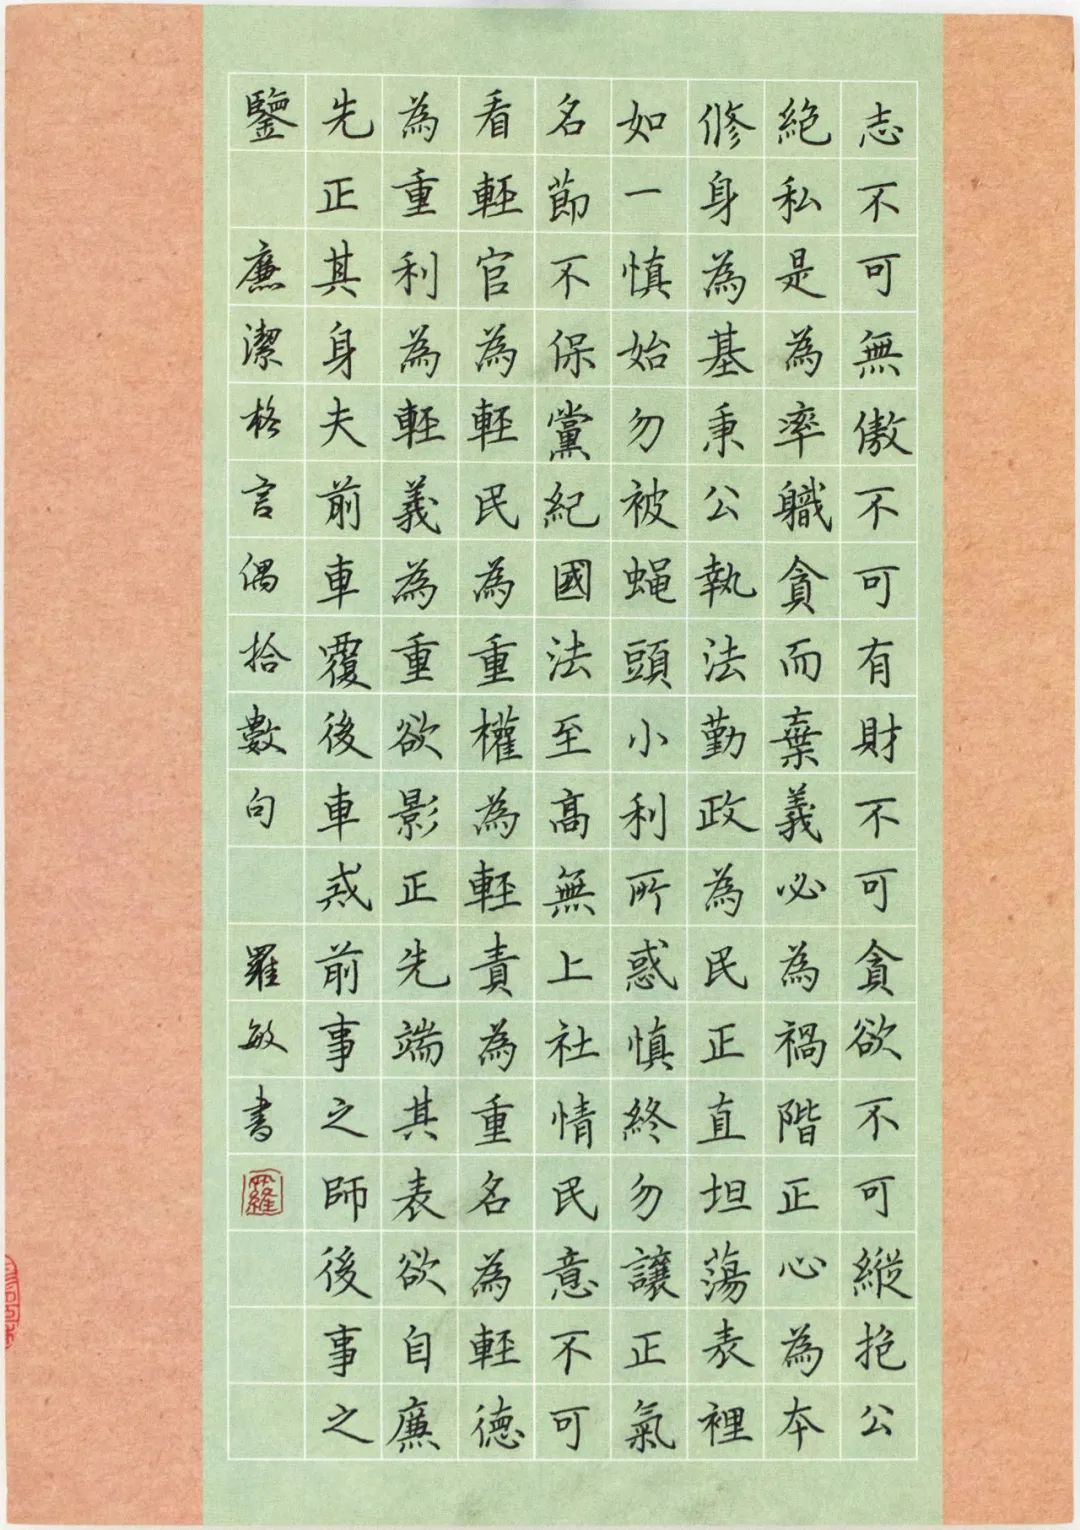 志不可無傲不可有財不可貪欲不可縱抱公
絕私是為率職貪而棄義必為禍階正心為本
修身為基秉公執法勤政為民正直坦蕩表裡
如一慎始勿被蝇頭小利所惑慎終勿讓正氣
名節不保黨紀國法至高無上社情民意不可
看輕官為輕民為重權為輕責為重名為輕德
為重利為輕義為重欲影正先端其表欲自廉
先正其身夫前車覆後車惑前事之師後事之
鑒 廉潔格言偶拾數句 羅敏書
羅